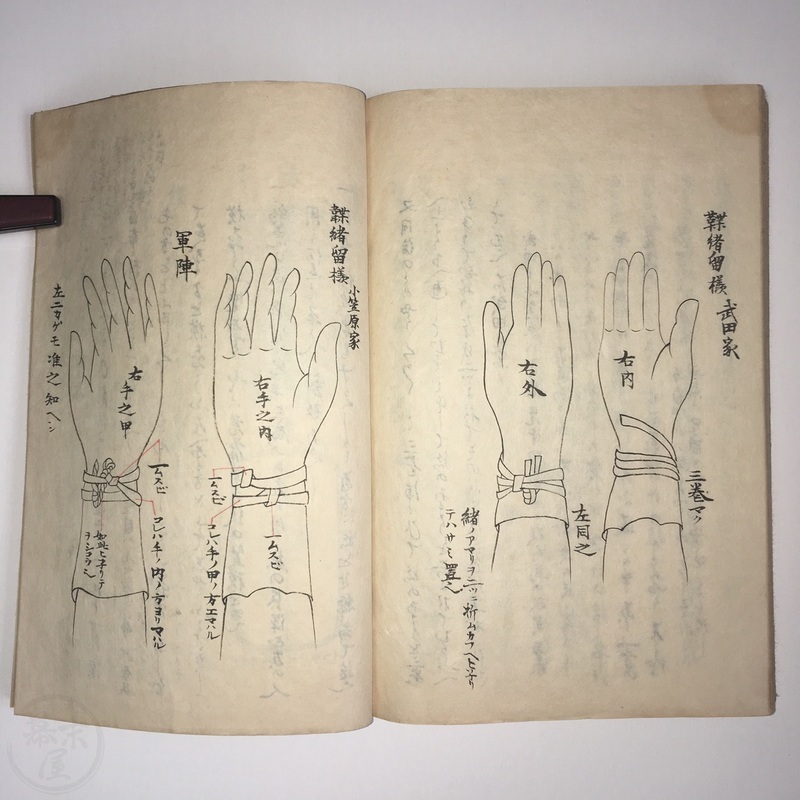 韘緒留様 武田家
右内
三巻マク
右外
左同之
緒ノアマリヲ二ツニ折ムカフヘヒネリ
テハサミ置之
韘緒留様 小笠原家
右手之内
一ムスビ
一ムスビ
コレハ手ノ甲ノ方エマハル
軍陣
右手之甲
一ムスビ
コレハ手ノ内ノ方ヨリマハル
如此ヒネリテ
左ニカケモ准之知ヘシ